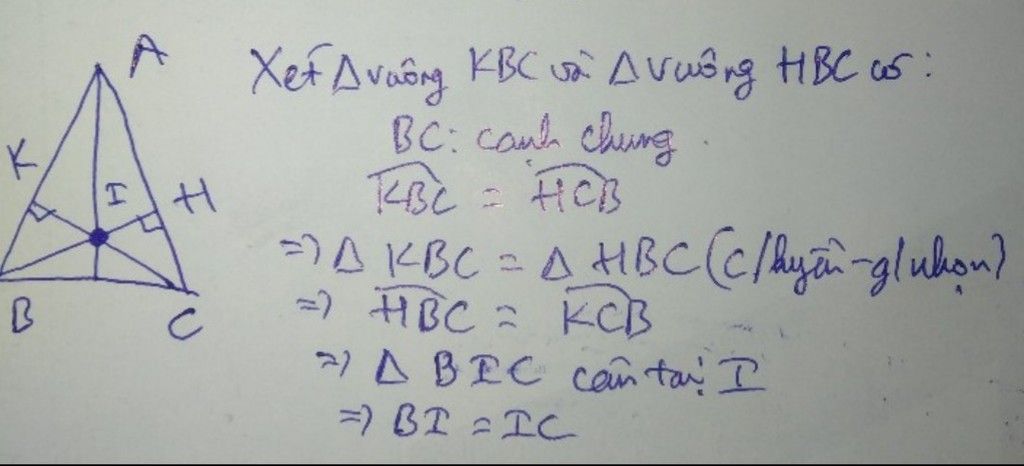 A
K
I
H
B
C
Xét Δvuông KBC và Δvuông HBC có:
BC: cạnh chung.
KBC = HCB
=> Δ KBC = Δ HBC (c/huyền-g/nhọn)
=> HBC = KCB
=> Δ BIC cân tại I
=> BI = IC